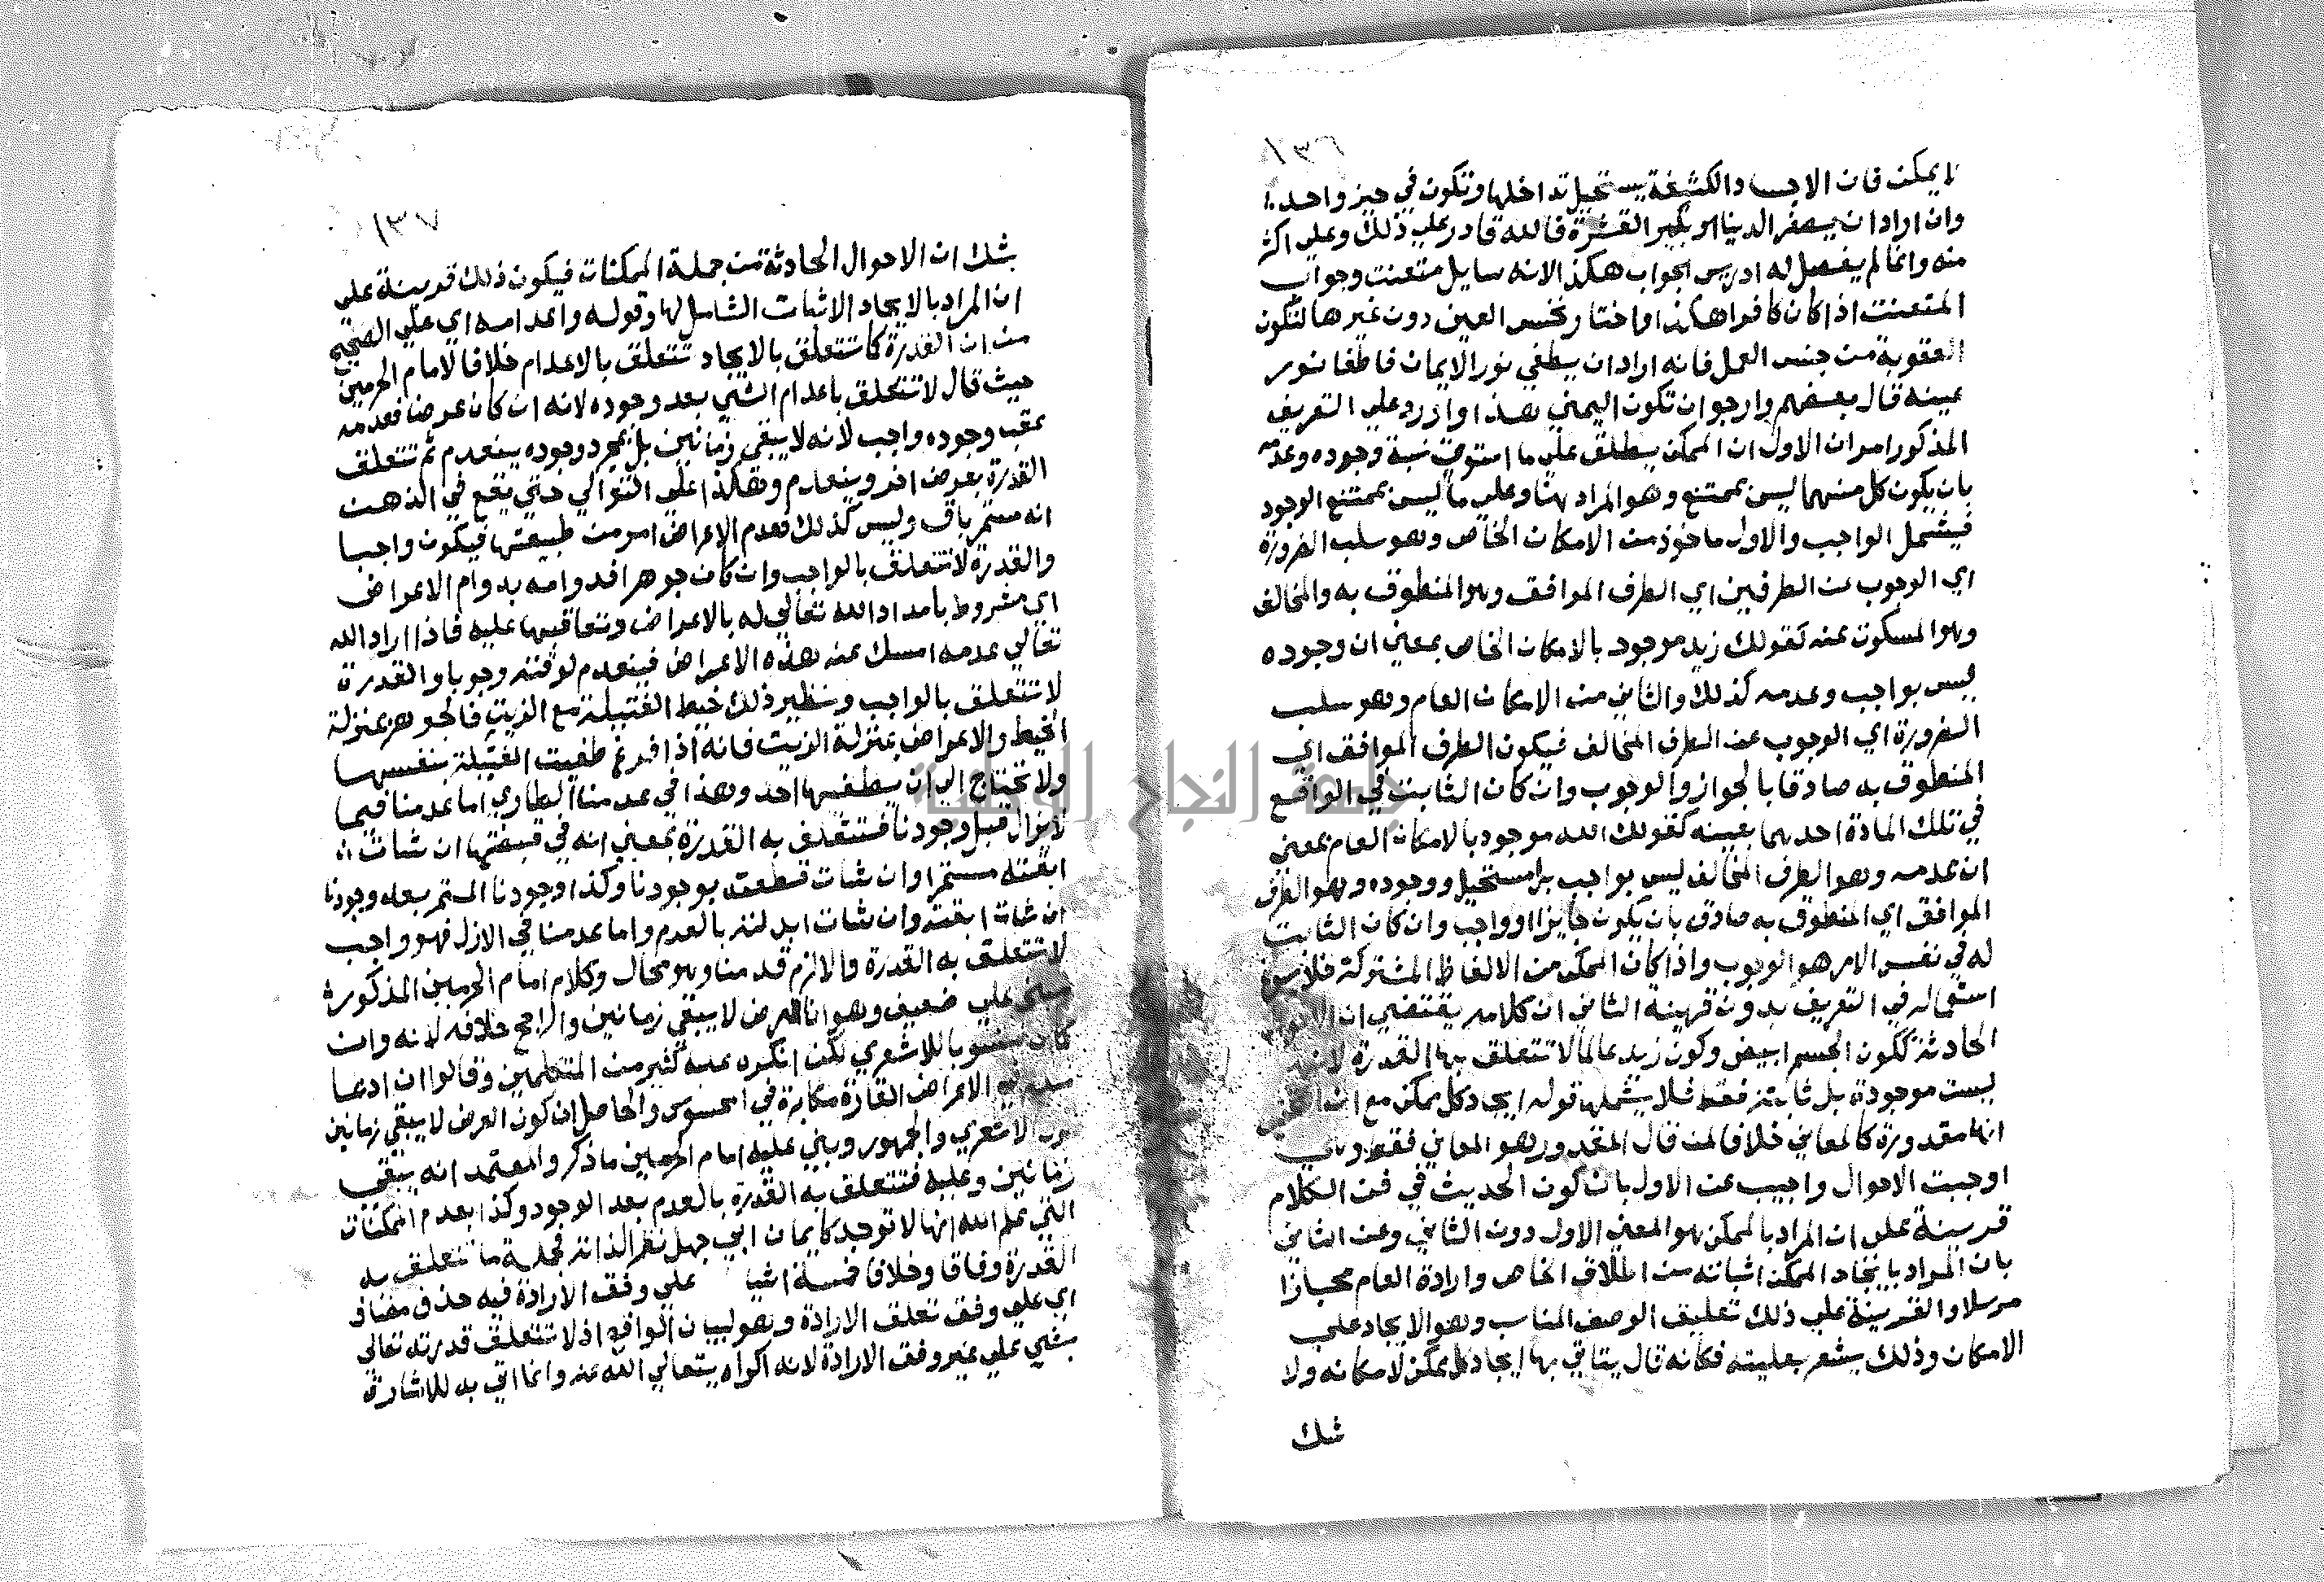 ١٣٦
لا يمكن فان الاجساد الكثيفة يستحيل تداخلها وتكون في حيز واحد
وان اراد ان يصغر الدنيا او يكبر القشرة فالله قادر علي ذلك وعلي اكثر
منه وانما لم يفصل له ادريس الجواب هكذا لانه سايل متعنت وجواب
المتعنت اذا كان كافرا هكذا واختار نخس العين دون غيرها لتكون
العقوبة من جنس العمل فانه اراد ان يطفي نور الايمان فاطفا نور
عينه قال بعضهم وارجو ان تكون اليمني هذا واورد علي التعريف
المذكور امران الاول ان الممكن يطلق علي ما استوت نسبة وجوده وعدمه
بان يكون كل منهما ليس بممتنع وهو المراد هنا وعلي ما ليس بممتنع الوجود
فيشمل الواجب والاول ماخوذ من الامكان الخاص وهو سلب الضرورة
اي الوجوب عن الطرفين اي الطرف الموافق وهو المنطوق به والمخالف
وهو المسكوت عنه كقولك زيد موجود بالامكان الخاص بمعني ان وجوده
ليس بواجب وعدمه كذلك والثاني من الامكان العام وهو سلب
الضرورة اي الوجوب عن الطرف المخالف فيكون الطرف الموافق اي
المنطوق به صادقا بالجواز والوجوب وان كان الثابت في الواقع
في تلك المادة احدهما بعينه كقولك الله موجود بالامكان العام بمعني
ان عدمه وهو الطرف المخالف ليس بواجب بل مستحيل ووجوده وهو الطرف
الموافق اي المنطوق به صادق بان يكون جايزا او واجب وان كان الثابت
له في نفس الامر هو الوجوب واذا كان الممكن من الالفاظ المشتركة فلا يسوغ
استعماله في التعريف بدون قرينة الثاني ان كلامه يقتضي ان الاحوال
الحادثة ككون الجسم ابيض وكون زيد عالما لا تتعلق بها القدرة لانها
ليست موجودة بل ثابتة فقط فلا يشملها قوله ايجاد كل ممكن مع ان
انها مقدورة كالمعاني خلافا لمن قال المقدور هو المعاني فقط وهي
اوجبت الاحوال واجيب عن الاول بان كون الحديث في فن الكلام
قرينة علي ان المراد بالممكن هو المعني الاول دون الثاني وعن الثاني
بان المراد بايجاد الممكن اثباته من اطلاق الخاص وارادة العام مجازا
مرسلا والقرينة علي ذلك تعليق الوصف المناسب وهو الايجاد علي
الامكان وذلك يشعر بعليته فكانه قال يتاتي بها ايجاد كل ممكن لامكانه ولا
شك
١٣٧
شك ان الاحوال الحادثة من جملة الممكنات فيكون ذلك قرينة علي
ان المراد بالايجاد الاثبات الشامل لها وقوله واعدامه اي علي الصحيح
من ان القدرة كما تتعلق بالايجاد تتعلق بالاعدام خلافا لامام الحرمين
حيث قال لا تتعلق باعدام الشي بعد وجوده لانه ان كان عرضا فعدمه
عقب وجوده واجب لانه لا يبقي زمانين بل بمجرد وجوده ينعدم ثم تتعلق
القدرة بعرض اخر وينعدم وهكذا علي التوالي حتي يقع في الذهن
انه مستمر باق وليس كذلك فعدم الاعراض امر من طبيعتها فيكون واجبا
والقدرة لا تتعلق بالواجب وان كان جوهرا فدوامه بدوام الاعراض
اي مشروط بامداد الله تعالي له بالاعراض وتعاقبها عليه فاذا اراد الله
تعالي عدمه امسك عنه هذه الاعراض فينعدم لوقته وجوبا والقدرة
لا تتعلق بالواجب ونظير ذلك خيط الفتيلة مع الزيت فالجوهر بمنزلة
الخيط والاعراض بمنزلة الزيت فانه اذا فرغ طفيت الفتيلة بنفسها
ولا تحتاج الي ان يطفيها احد وهذا في عدمنا الطاري اما عدمنا فيما
لا يزال قبل وجودنا فتتعلق به القدرة بمعني انه في قبضتها ان شات
ابقته مستمرا وان شات قطعته بوجودنا وكذا وجودنا المستمر بعد وجودنا
ان شات ابقته وان شات ابدلته بالعدم واما عدمنا في الازل فهو واجب
لا تتعلق به القدرة والا لزم قدمنا وهو محال وكلام امام الحرمين المذكور
مبني علي ضعيف وهو ان العرض لا يبقي زمانين والراجح خلافه لانه وان
كان منسوبا للاشعري لكن انكره عليه كثير من المتكلمين وقالوا ان ادعا
الاعراض القارة مكابرة في المحسوس والحاصل ان كون العرض لا يبقي زمانين
الاشعري والجمهور وبني عليه امام الحرمين ما ذكر والمعتمد انه يبقي
زمانين وعليه فتتعلق به القدرة بالعدم بعد الوجود وكذا بعدم الممكنات
التي علم الله انها لا توجد كايمان ابي جهل نظر الذاته فجملة ما تتعلق به
القدرة وفاقا وخلافا خمسة اشيا علي وفق الارادة فيه حذف مضاف
اي علي وفق تعلق الارادة وهو لبيان الواقع اذ لا تتعلق قدرته تعالي
بشي علي غير وفق الارادة لانه اكراه يتعالي الله عنه وانما اتي به للاشارة
جامعة النجاح الوطنية